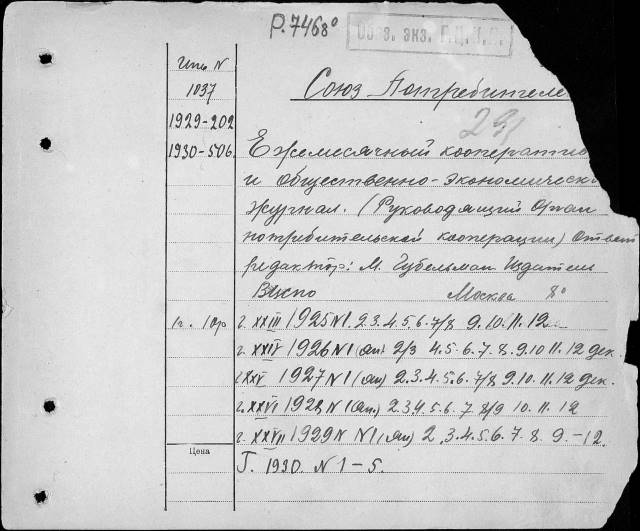 Р.7468⁰
Обяз. экз. Г.Ц.К.П.
Инв N
1037
1929-202
1930-506
Союз Потребителе
291
Ежемесячный кооператив
и общественно-экономическ
журнал. (Руководящий Орган
потребительской кооперации) Ответ
редактор: М. Губельман Издатель
Вцспо Москва 8⁰
1г. 10р г. XXIII 1925 N1. 2.3.4.5.6.7/8 9.10.11.12
г. XXIV 1926 N1 (ян) 2/3 4.5.6.7.8.9.10 11.12 дек.
г. XXV 1927 N1 (ян) 2.3.4.5.6.7/8 9.10.11.12 дек.
г. XXVI 1928 N1 (ян.) 2.3.4.5.6.7 8/9 10.11.12
г. XXVII 1929 N N1 (ян) 2.3.4.5.6.7.8.9.-12.
Цена
Г. 1930. N 1-5.